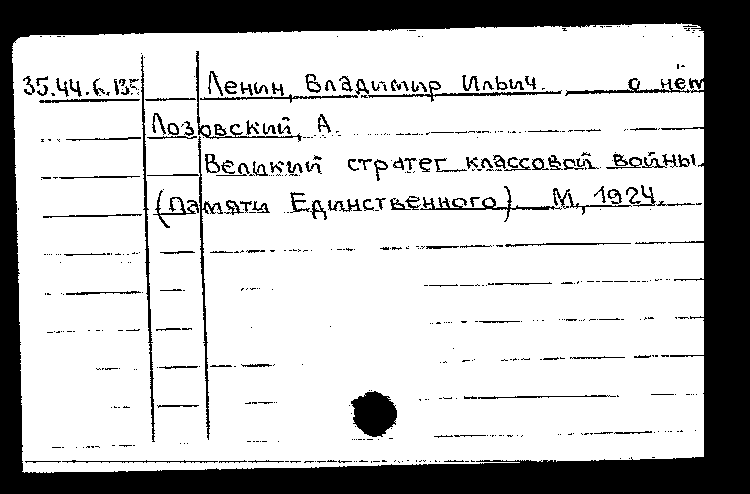 35.44.6.135 Ленин, Владимир Ильич. о нём
Лозовский, А.
Великий стратег классовой войны.
(Памяти Единственного) М., 1924.